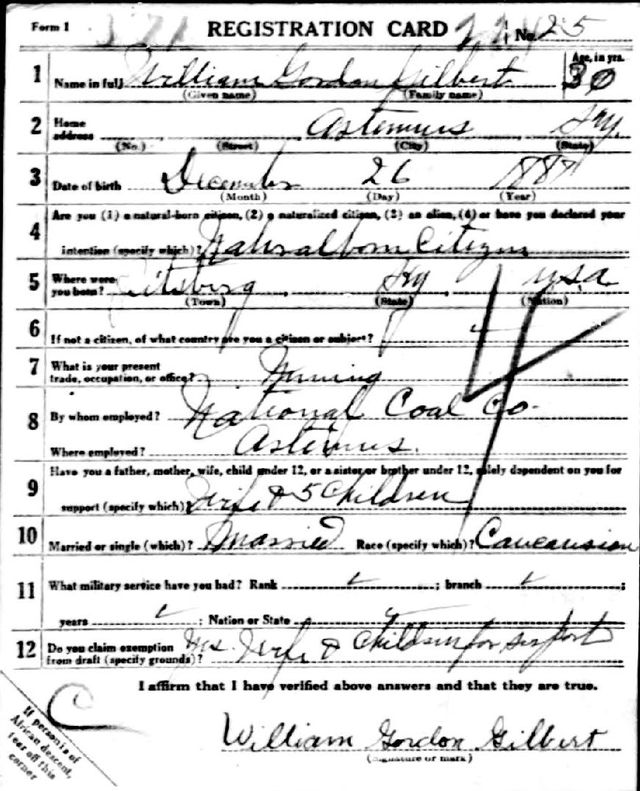 Form 1 371 REGISTRATION CARD No. 25
1 Name in full William Gordon Gilbert Age, in yrs. 30
(Given name) (Family name)
2 Home address Artemus Ky.
(No.) (Street) (City) (State)
3 Date of birth December 26 1887
(Month) (Day) (Year)
Are you (1) a natural-born citizen, (2) a naturalized citizen, (3) an alien, (4) or have you declared your
4 intention (specify which)? Natural born Citizen
5 Where were you born? Pitsburg Ky USA
(Town) (State) (Nation)
6 If not a citizen, of what country are you a citizen or subject?
7 What is your present trade, occupation, or office? Mining
8 By whom employed? National Coal Co.
Where employed? Artemus.
Have you a father, mother, wife, child under 12, or a sister or brother under 12, solely dependent on you for
9 support (specify which)? Wife & 5 Children
10 Married or single (which)? Married Race (specify which)? Caucausion
11 What military service have you had? Rank ; branch ;
years ; Nation or State
12 Do you claim exemption from draft (specify grounds)? Yes. Wife & Children for support
I affirm that I have verified above answers and that they are true.
C
If person is of African descent, tear off this corner
William Gordon Gilbert
(Signature or mark)
4